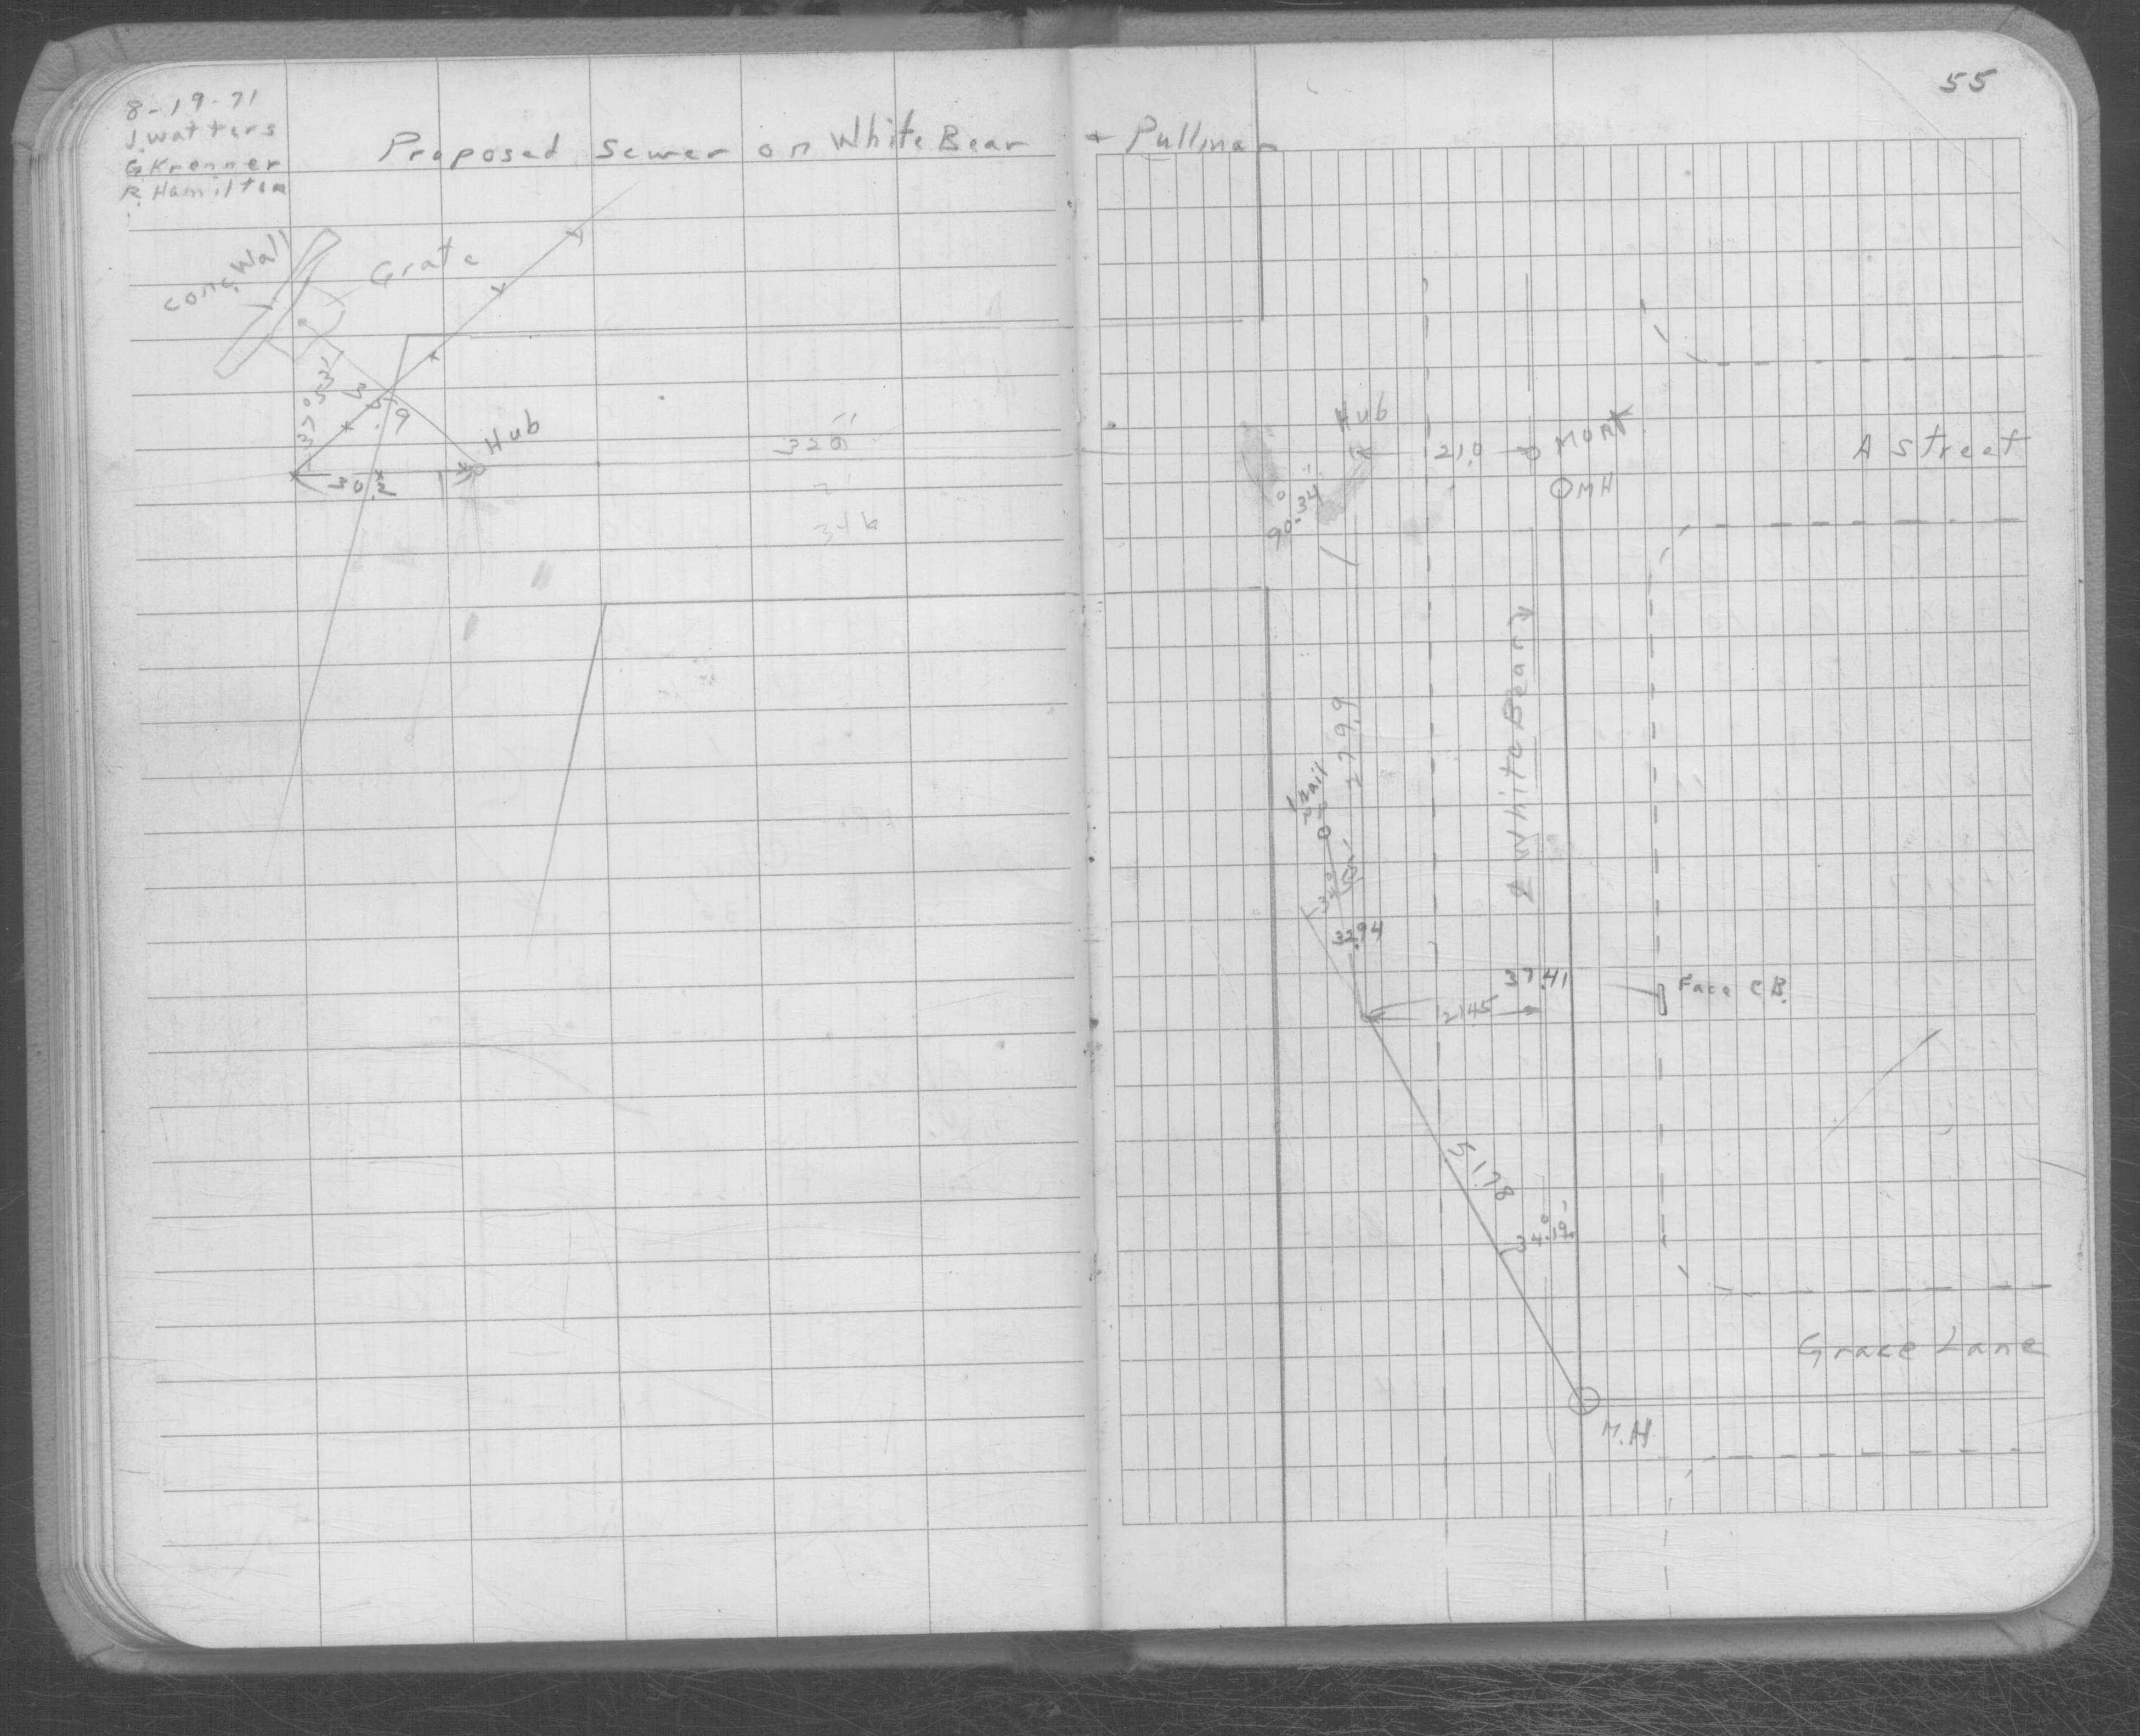 55
8-19-71
J. Watters
G Krenner
R. Hamilton
Proposed Sewer on White Bear + Pullman
Conc. Wall
Grate
37°53'
35.9
Hub
30.2
Hub
21.0
MON
OMH
A Street
90°-34'
279.9
White Bear
nail
32.94
37.41
Face C.B.
21.45
41.78
34°19'
Grace Lane
M.H